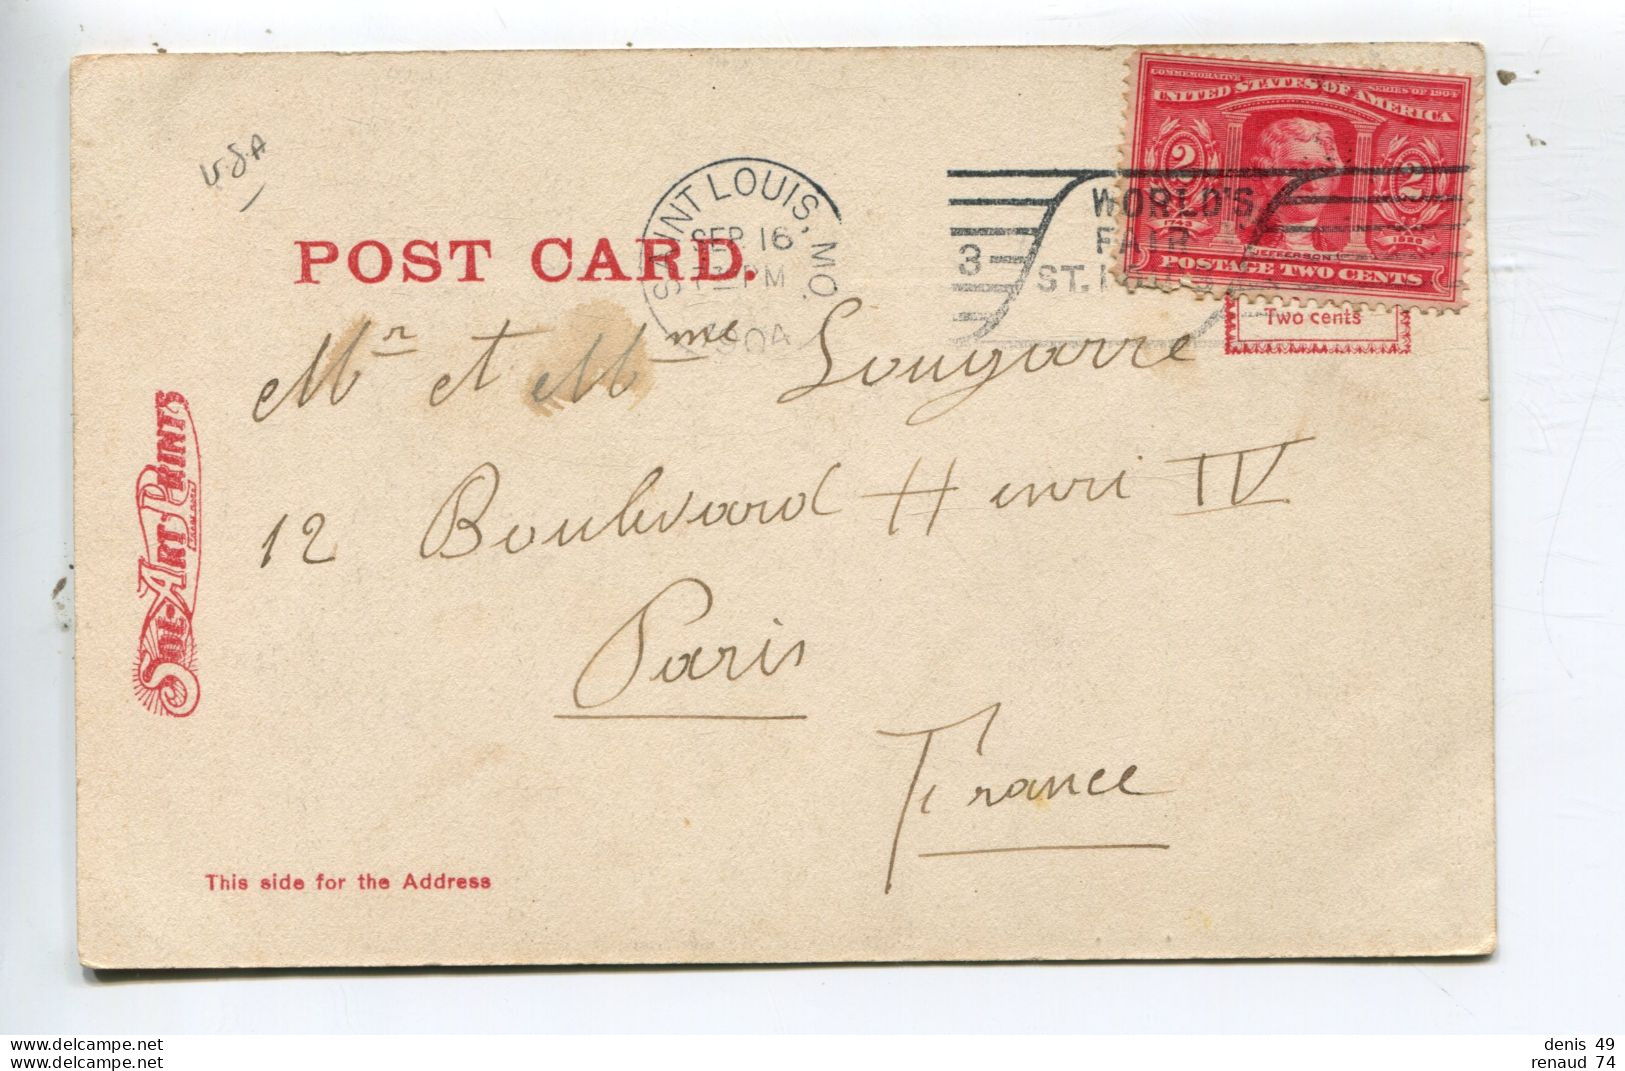 USA
COMMEMORATIVE SERIES OF 1904
UNITED STATES OF AMERICA
2 2
1743 1826
JEFFERSON
POSTAGE TWO CENTS
Two cents
SAINT LOUIS, MO.
SEP 16
PM
1904
3
WORLD'S
FAIR
ST. LOUIS
POST CARD.
Mr et Mme Lougarre
12 Boulevard Henri IV
Paris
France
SOL-ART PRINTS
This side for the Address
delcampe.net
delcampe.net
denis 49
renaud 74